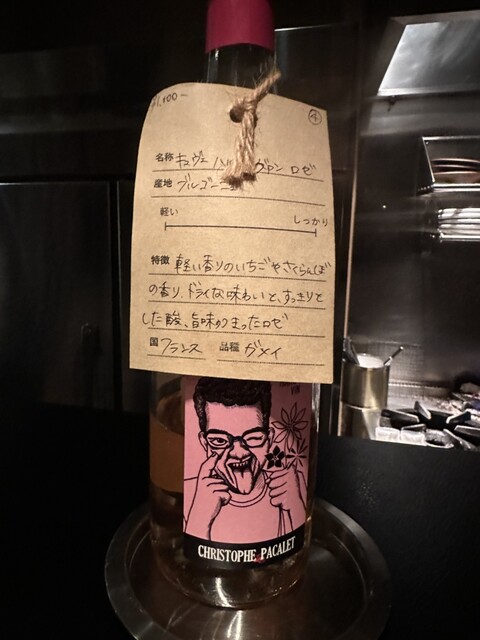 ¥1,100-
④
名称 キュヴェ ロゼ
産地 ブルゴーニュ
軽い しっかり
特徴 軽い香りのいちごやさくらんぼ
の香り、ドライな味わいと、すっきりと
した酸、旨味のつまったロゼ
国 フランス 品種 ガメイ
CHRISTOPHE PACALET